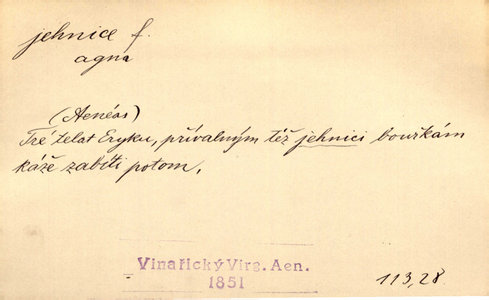 jehnice f.
agna
(Aenéas)
Tré telat Eryku, přívalným též jehnici bouřkám
káže zabíti potom.
Vinařický Virg. Aen.
1851
113,28